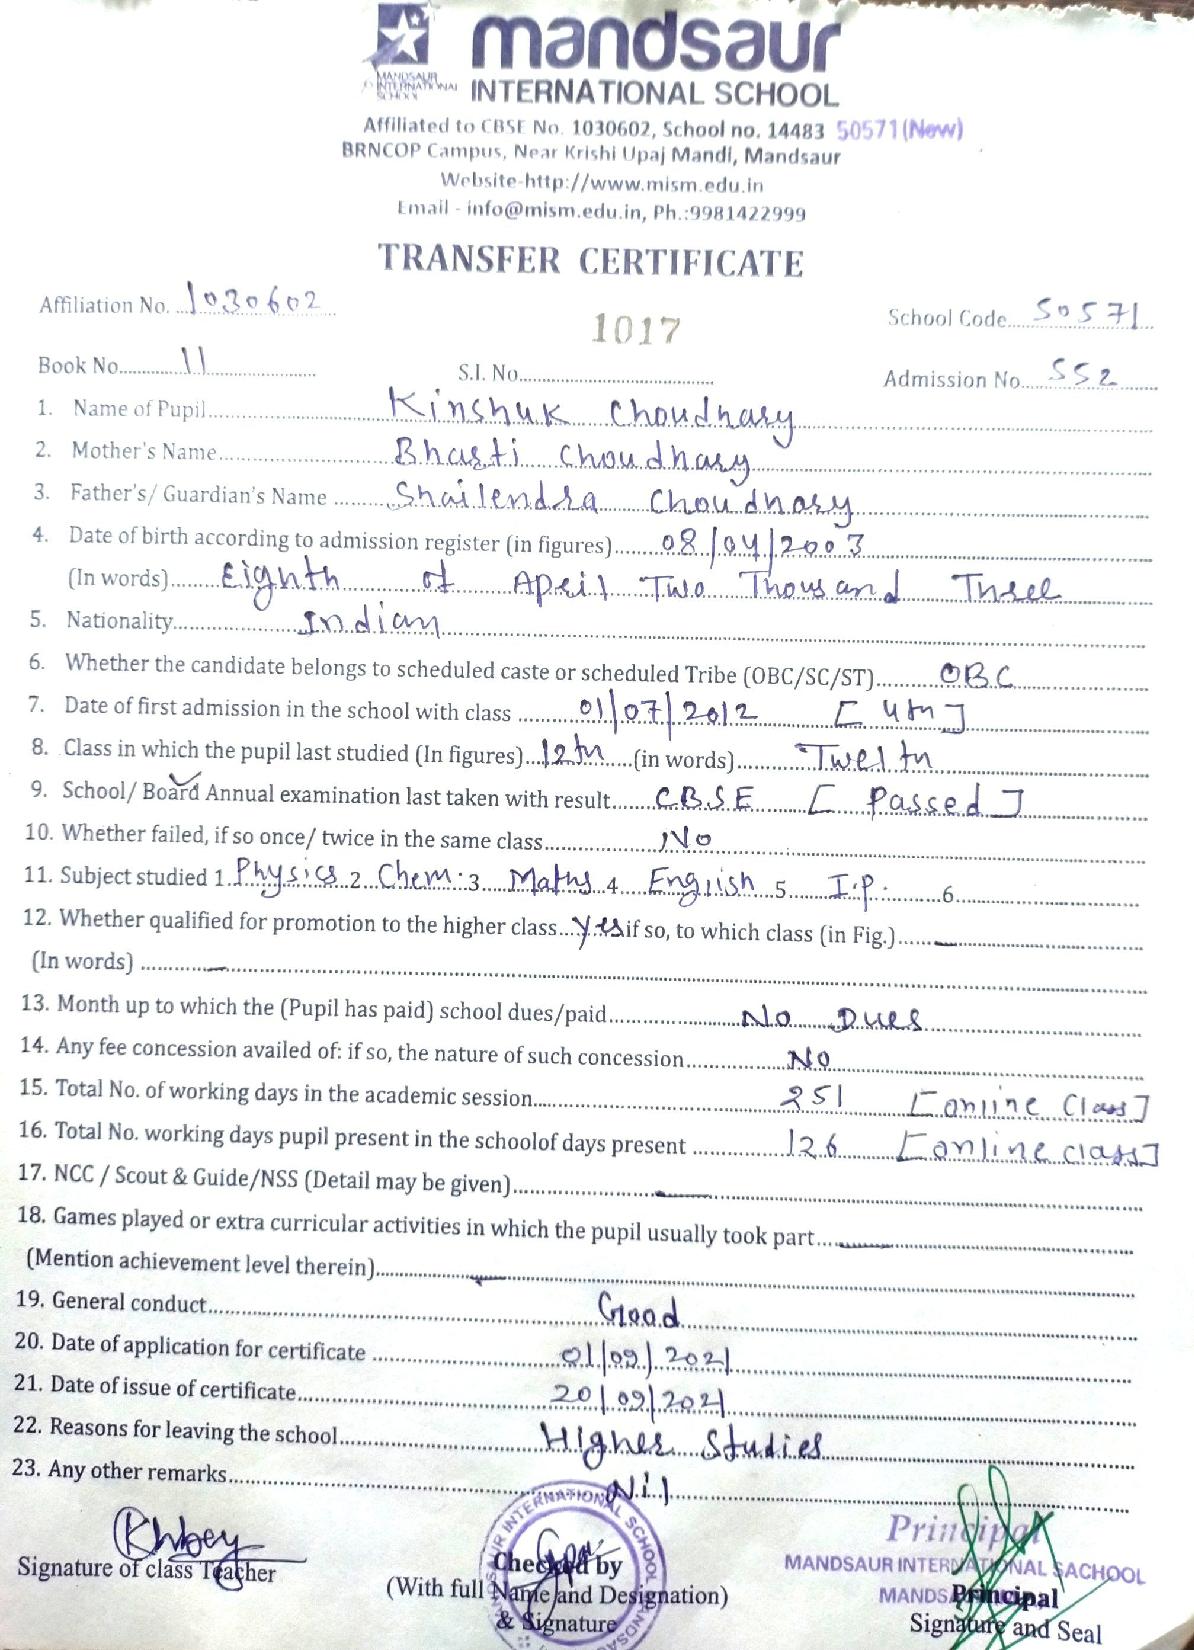 mandsaur
MANDSAUR INTERNATIONAL SCHOOL
INTERNATIONAL SCHOOL
Affiliated to CBSE No. 1030602, School no. 14483 50571(New)
BRNCOP Campus, Near Krishi Upaj Mandi, Mandsaur
Website-http://www.mism.edu.in
Email - info@mism.edu.in, Ph.:9981422999
TRANSFER CERTIFICATE
Affiliation No. 1030602 1017 School Code 50571
Book No. 11 S.I. No. Admission No. 552
1. Name of Pupil Kinshuk Choudhary
2. Mother's Name Bharti Choudhary
3. Father's/ Guardian's Name Shailendra Choudhary
4. Date of birth according to admission register (in figures) 08/04/2003
(In words) Eighth of April Two Thousand Three
5. Nationality Indian
6. Whether the candidate belongs to scheduled caste or scheduled Tribe (OBC/SC/ST) OBC
7. Date of first admission in the school with class 01/07/2012 [4th]
8. Class in which the pupil last studied (In figures) 12th (in words) Twelth
9. School/ Board Annual examination last taken with result C.B.S.E [Passed]
10. Whether failed, if so once/ twice in the same class No
11. Subject studied 1 Physics 2 Chem. 3 Maths 4 English 5 I.P. 6
12. Whether qualified for promotion to the higher class Yes if so, to which class (in Fig.) —
(In words) —
13. Month up to which the (Pupil has paid) school dues/paid No Dues
14. Any fee concession availed of: if so, the nature of such concession No
15. Total No. of working days in the academic session 251 [online Class]
16. Total No. working days pupil present in the schoolof days present 126 [online class]
17. NCC / Scout & Guide/NSS (Detail may be given) —
18. Games played or extra curricular activities in which the pupil usually took part —
(Mention achievement level therein) —
19. General conduct Good
20. Date of application for certificate 01/09/2021
21. Date of issue of certificate 20/09/2021
22. Reasons for leaving the school Higher Studies
23. Any other remarks Nil
Signature of class Teacher
Checked by
(With full Name and Designation)
& Signature
MANDSAUR INTERNATIONAL SCHOOL
Principal
MANDSAUR INTERNATIONAL SACHOOL
Principal
Signature and Seal